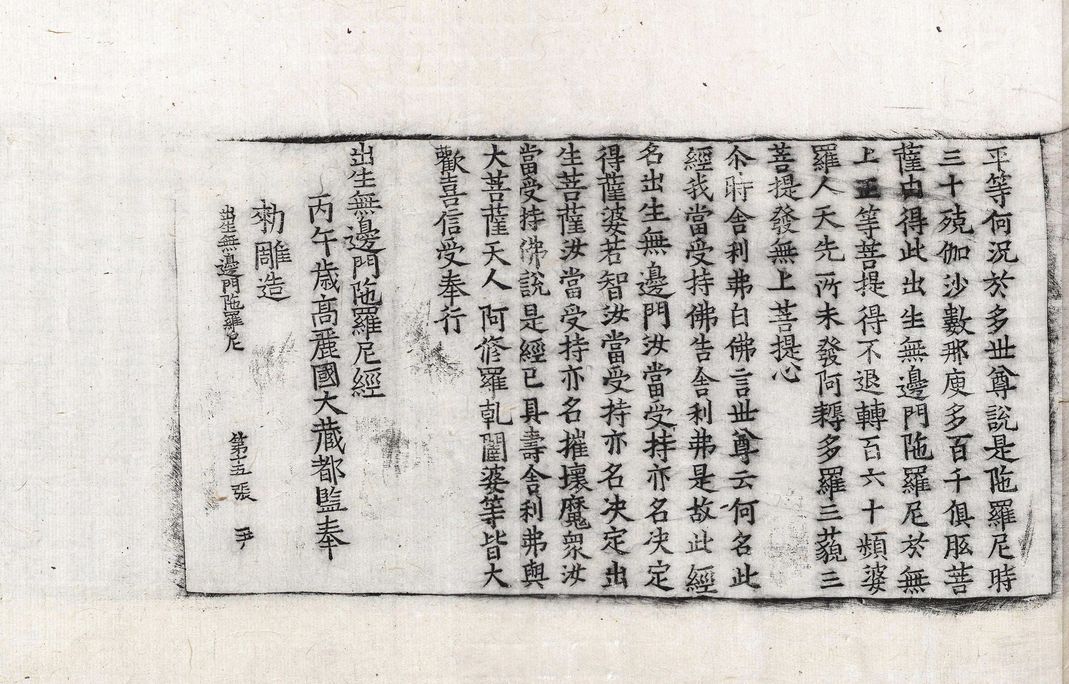 平等何況於多世尊說是陁羅尼時
三十殑伽沙數那庾多百千俱胝菩
薩由得此出生無邊門陁羅尼於無
上正等菩提得不退轉百六十頻婆
羅人天先所未發阿耨多羅三藐三
菩提發無上菩提心
尒時舍利弗白佛言世尊云何名此
經我當受持佛告舍利弗是故此經
名出生無邊門汝當受持亦名決定
得薩婆若智汝當受持亦名決定出
生菩薩汝當受持亦名摧壞魔衆汝
當受持佛說是經已具壽舍利弗與
大菩薩天人阿修羅乹闥婆等皆大
歡喜信受奉行
出生無邊門陁羅尼經
丙午歲高麗國大藏都監奉
勑雕造
出生無邊門陁羅尼 第五張